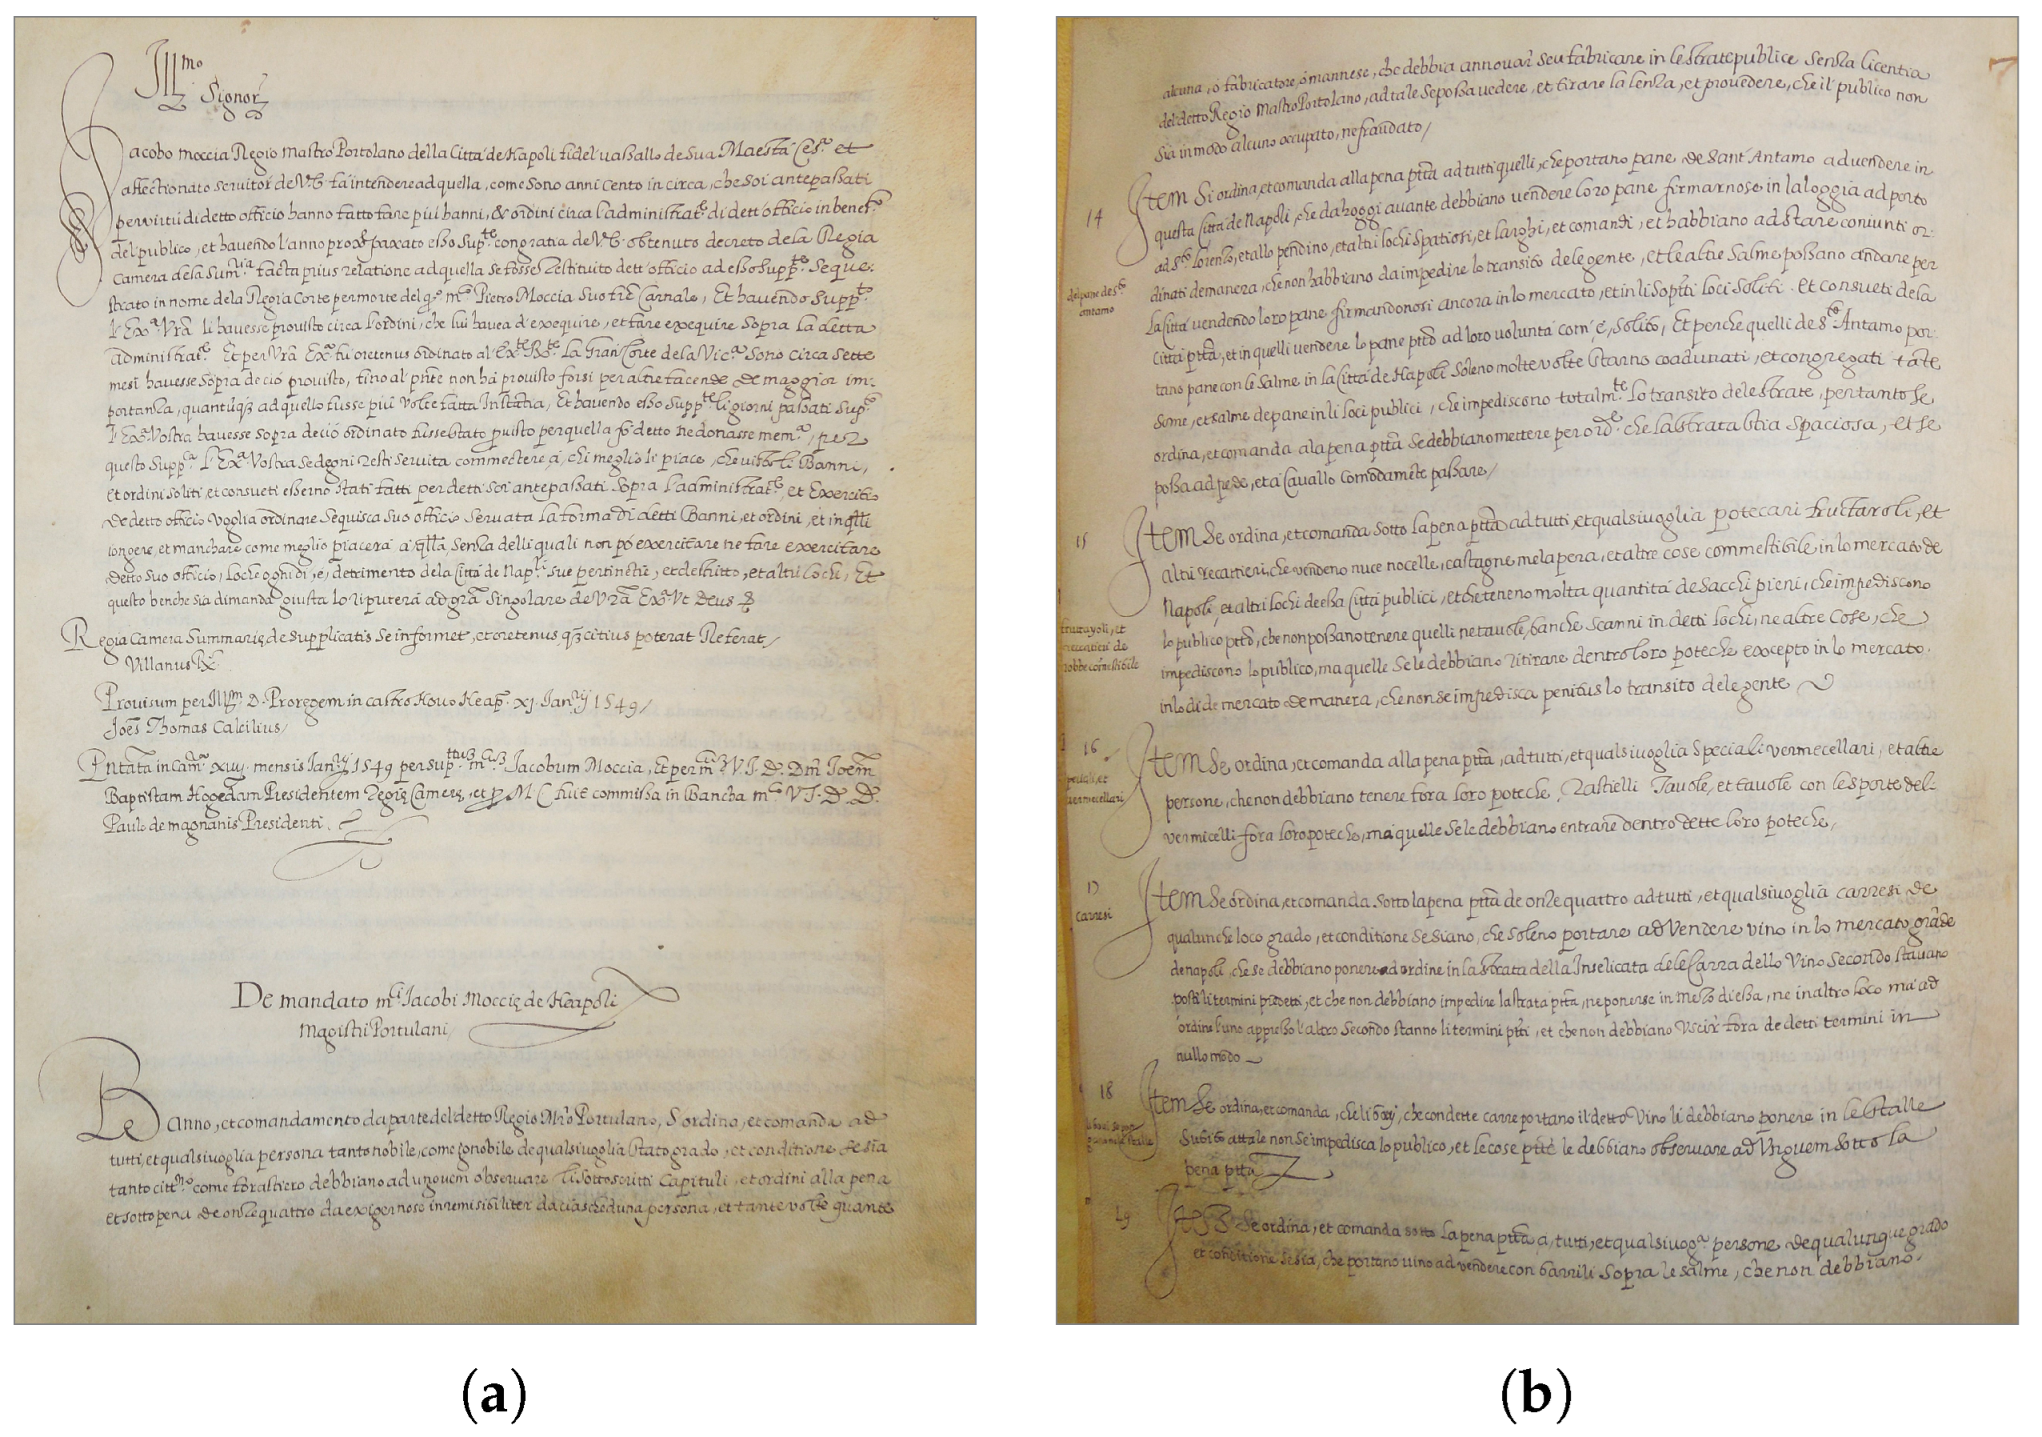 Ill.mo
Signor
Jacobo moccia Regio mastro Portolano della Citta de Napoli fidel vassallo de sua Maesta Ces.a et
affectionato servitor de V.E. fa intendere ad quella, come sono anni cento in circa, che soi antepassati
per virtu di detto officio hanno fatto fare piu banni, & ordini circa l'administrat.e di dett'officio in benef.o
del publico, et havendo l'anno prox.o passato esso Sup.te con gratia de V.E. obtenuto decreto de la Regia
Camera de la Sum.ria facta prius relatione ad quella se fosse restituito dett'officio ad esso Supp.te Seque:
strato in nome de la Regia Corte per morte del q.o m.co Pietro Moccia suo fre Carnale, Et havendo Supp.to
l'Ex.a Vra li havesse provisto circa l'ordini, che lui havea d'exequire, et fare exequire sopra la detta
administrat.e Et per Vra Ex.a fu oretenus ordinato al la Gran Corte de la Vic.a sono circa sette
mesi havesse sopra de cio provisto, fino al pnte non ha provisto forsi per altre facende de maggior im-
portanza, ad quello fusse piu volte fatta Instatia, Et havendo esso Supp.te li giorni passati Sup.to
l'Ex.a Vostra havesse sopra de cio ordinato fusse stato puisto per quella fo detto ne donasse mem.a, per
questo Supp.a l'Ex.a Vostra se degni resti servita commectere a, chi meglio le piace, che visto li Banni,
et ordini soliti, et consueti esserno stati fatti per detti soi antepassati sopra l'administrat.e, et Exercitio
de detto officio voglia ordinare sequisca suo officio servata la forma di detti Banni, et ordini, et in qlli
iongere, et manchare come meglio piacera a qlla, senza delli quali non po exercitare ne fare exercitare
detto suo officio, lo che ogni di, e, detrimento de la Citta de Nap.li sue pertinetie, et destritto, et altri lochi, Et
questo benche sia dimanda giusta lo riputera ad gra singolare de Vra Ex.a Vt Deus
Regia Camera Summarie de supplicatis se informet, et oretenus citius poterat Referat,
Villanus
Provisum per Ill.m D. Proregem in castro Novo Neap. xj. Jan.rij 1549,
Joes Thomas Calcilius,
Pntata in Cam.a mensis Jan.rij 1549 per Jacobum Moccia, Et per V.J.D. Dm Joem
Baptistam Presidentem Regie Camere, et M.C. fuit commissa in Bancha m.ci V.J.D. D.
Paulo de magnanis Presidenti.
De mandato m.ci Jacobi Moccie de Neapoli
Magistri Portulani
Banno, et comandamento da parte del detto Regio Mro Portulano, S'ordina, et comanda ad
tutti, et qualsivoglia persona tanto nobile, come ignobile de qualsivoglia stato grado, et conditione se sia
tanto citt.no come forastiero debbiano ad unguem observare li sottoscritti Capituli, et ordini alla pena
et sotto pena de onze quattro da exigernose inremisibiliter da ciascheduna persona, et tante volte quante
alcuna, o fabricatore, o mannese, che debbia annovar seu fabricare in le strate publice senza licentia
del detto Regio Mastro Portolano, ad tale se possa vedere, et tirare la lenza, et provedere, che il publico non
sia in modo alcuno occupato, ne fraudato,
14
Item Si ordina, et comanda alla pena ptta ad tutti quelli, che portano pane de Sant'Antamo ad vendere in
questa Citta de Napoli, che da hoggi avante debbiano vendere loro pane firmarnose in la loggia ad porto
ad S.to Lorenzo, et allo pendino, et altri lochi spatiosi, et larghi, et comandi, et habbiano ad stare coniunti or-
dinati de manera, che non habbiano da impedire lo transito dele gente, et le altre salme possano andare per
del pane de S.to
antamo
la Citta vendendo loro pane firmandonosi ancora in lo mercato, et in li sopti loci soliti, et consueti de la
citta ptta, et in quelli vendere lo pane ptto ad loro volunta com'e, solito, Et perche quelli de S.to Antamo por-
tano pane con le salme in la Citta de Napoli soleno molte volte starno coadunati, et congregati tate
some, et salme de pane in li loci publici, che impediscono totalm.te lo transito dele strate, per tanto se
ordina, et comanda ala pena ptta se debbiano mettere per ord.e che la strata stia spaciosa, et se
possa ad pede, et a Cavallo comodamete passare,
15
Item Se ordina, et comanda sotto la pena ptta ad tutti, et qualsivoglia potecari fructaroli, et
altri recattieri, che vendeno nuce nocelle, castagne mela pera, et altre cose commestibile in lo mercato de
Napoli, et altri lochi de essa Citta publici, et che teneno molta quantita de sacchi pieni, che impediscono
lo publico ptto, che non possano tenere quelli ne tavole, banche scanni in detti lochi, ne altre cose, che
fruttaroli, et
recattieri de
robbe comestibile
impediscono lo publico, ma quelle se le debbiano ritirare dentro loro poteche excepto in lo mercato.
in lo di de mercato de manera, che non se impedisca penitus lo transito dele gente
16
Item Se ordina, et comanda alla pena ptta, ad tutti, et qualsivoglia speciali vermecellari, et altre
speciali, et
vermecellari
persone, che non debbiano tenere fora loro poteche, Rastielli Tavole, et tavole con le sporte del-
vermicelli fora loro poteche, ma quelle se le debbiano entrare dentro dette loro poteche,
17
Item Se ordina, et comanda sotto la pena ptta de onze quattro ad tutti, et qualsivoglia carresi de
carresi
qualunche loco grado, et conditione se siano, che soleno portare ad Vendere vino in lo mercato grade
de napoli, che se debbiano ponere ad ordine in la strata della Inselicata dele Carra dello Vino secondo stavano
posti li termini predetti, et che non debbiano impedire la strata ptta, ne ponerse in mezo di essa, ne in altro loco ma ad
ordine l'uno appresso l'altro secondo stanno li termini ptti, et che non debbiano Uscir fora de detti termini in
nullo modo
18
Item Se ordina, et comanda, che li bovi, che con dette carre portano il detto Vino li debbiano ponere in le stalle
subito attale non se impedisca lo publico, et le cose ptte le debbiano observare ad Unguem sotto la
pena ptta
19
Item Se ordina, et comanda sotto la pena ptta a, tutti, et qualsivog.a persone de qualunque grado
et conditione se sia, che portano vino ad vendere con barrili sopra le salme, che non debbiano.
(a)
(b)